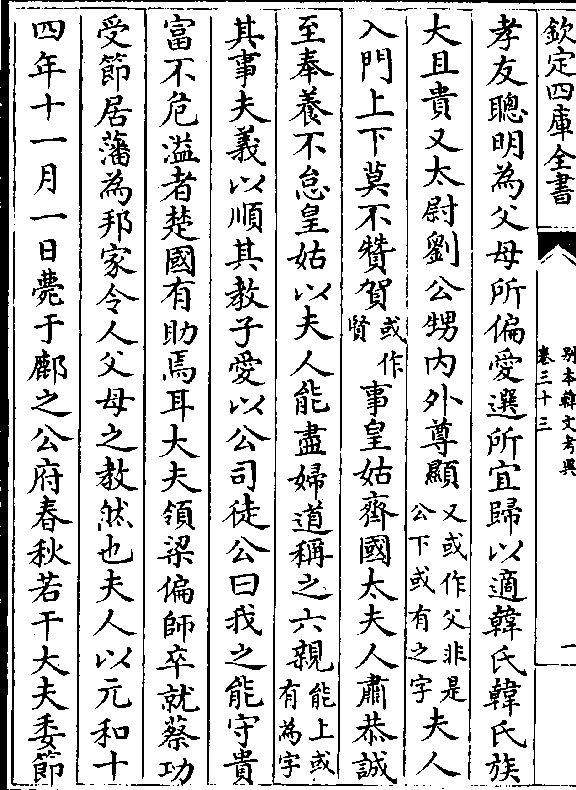 欽定四庫全書
別本韓文考異
卷三十三
一
孝友聰明為父母所偏愛選所宜歸以適韓氏韓氏族
大且貴又太尉劉公甥内外尊顯又或作父非是公下或有之字夫人
入門上下莫不贊賀或作賢事皇姑齊國太夫人肅恭誠
至奉養不怠皇姑以夫人能盡婦道稱之六親能上或有為字
其事夫義以順其教子愛以公司徒公曰我之能守貴
富不危溢者楚國有助焉耳大夫領梁偏師卒就蔡功
受節居藩為邦家令人父母之教然也夫人以元和十
四年十一月一日薨于鄜之公府春秋若干大夫委節